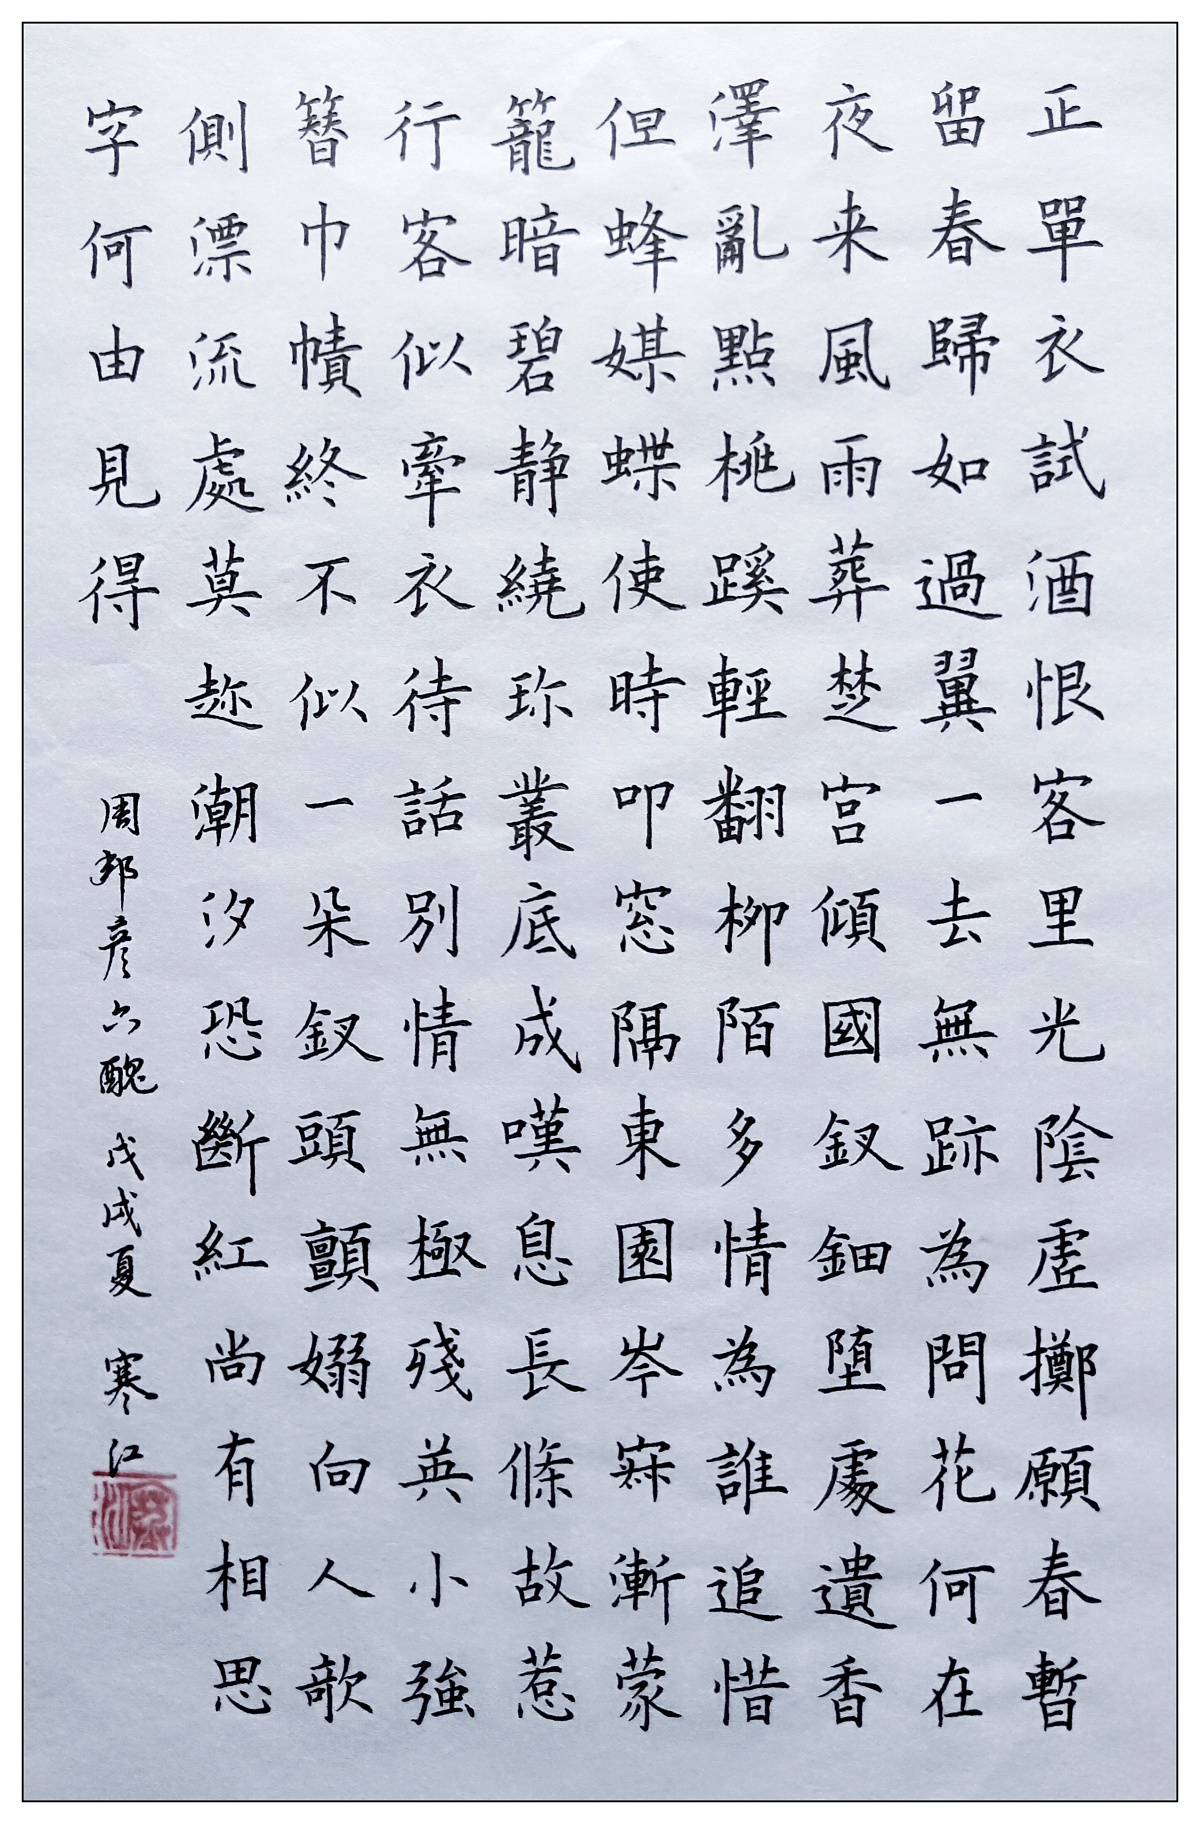 正單衣試酒恨客里光陰虛擲願春暫
留春歸如過翼一去無跡為問花何在
夜来風雨葬楚宮傾國釵鈿堕處遺香
澤亂點桃蹊輕翻柳陌多情為誰追惜
但蜂媒蝶使時叩窓隔東園岑寂漸蒙
籠暗碧静繞珎叢底成嘆息長條故惹
行客似牽衣待話別情無極殘英小強
簪巾幘終不似一朵釵頭顫嫋向人欹
側漂流處莫趂潮汐恐斷紅尚有相思
字何由見得
周邦彦六醜 戊戌夏 寒江
寒江